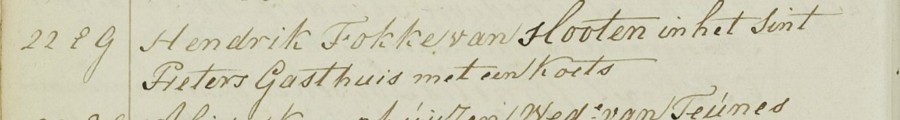 22 e G Hendrik Fokke van Slooten in het Sint
Pieters Gasthuis met een Koets
Wed.e van Teúnes